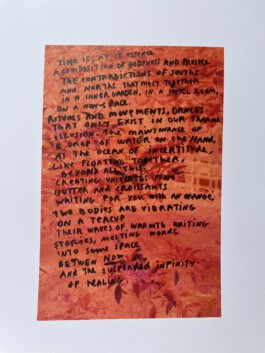 TIME IS, AT IT ESSENCE
A COMPOSITION OF BODYNESS AND
THE CONTRADICTIONS OF SOUTHS
AND NORTHS THAT MELT TOGETHER
IN A INNER GARDEN, IN A HOTEL ROOM,
ON A NON-SPACE.
RITUALS AND MOVEMENTS, DANCES
THAT ONLY EXIST IN OUR
ILLUSION. THE MAINTENANCE OF
A DROP OF WATER ON THE HAND,
AT THE OCEAN OF INCERTITUDE,
LIKE FLOATING TOGETHER,
BEYOND ALL THIS.
CREATING UNIVERSES FROM
BUTTER AND CROISSANTS
WAITING FOR YOU WITH AN ORANGE,
TWO BODIES ARE VIBRATING
ON A TEACUP
THEIR WAVES OF WARMTH WRITING
STORIES, MELTING WORDS
INTO SOME SPACE
BETWEN NOW
AND THE SUSPENDED INFINITY
OF HEALING.